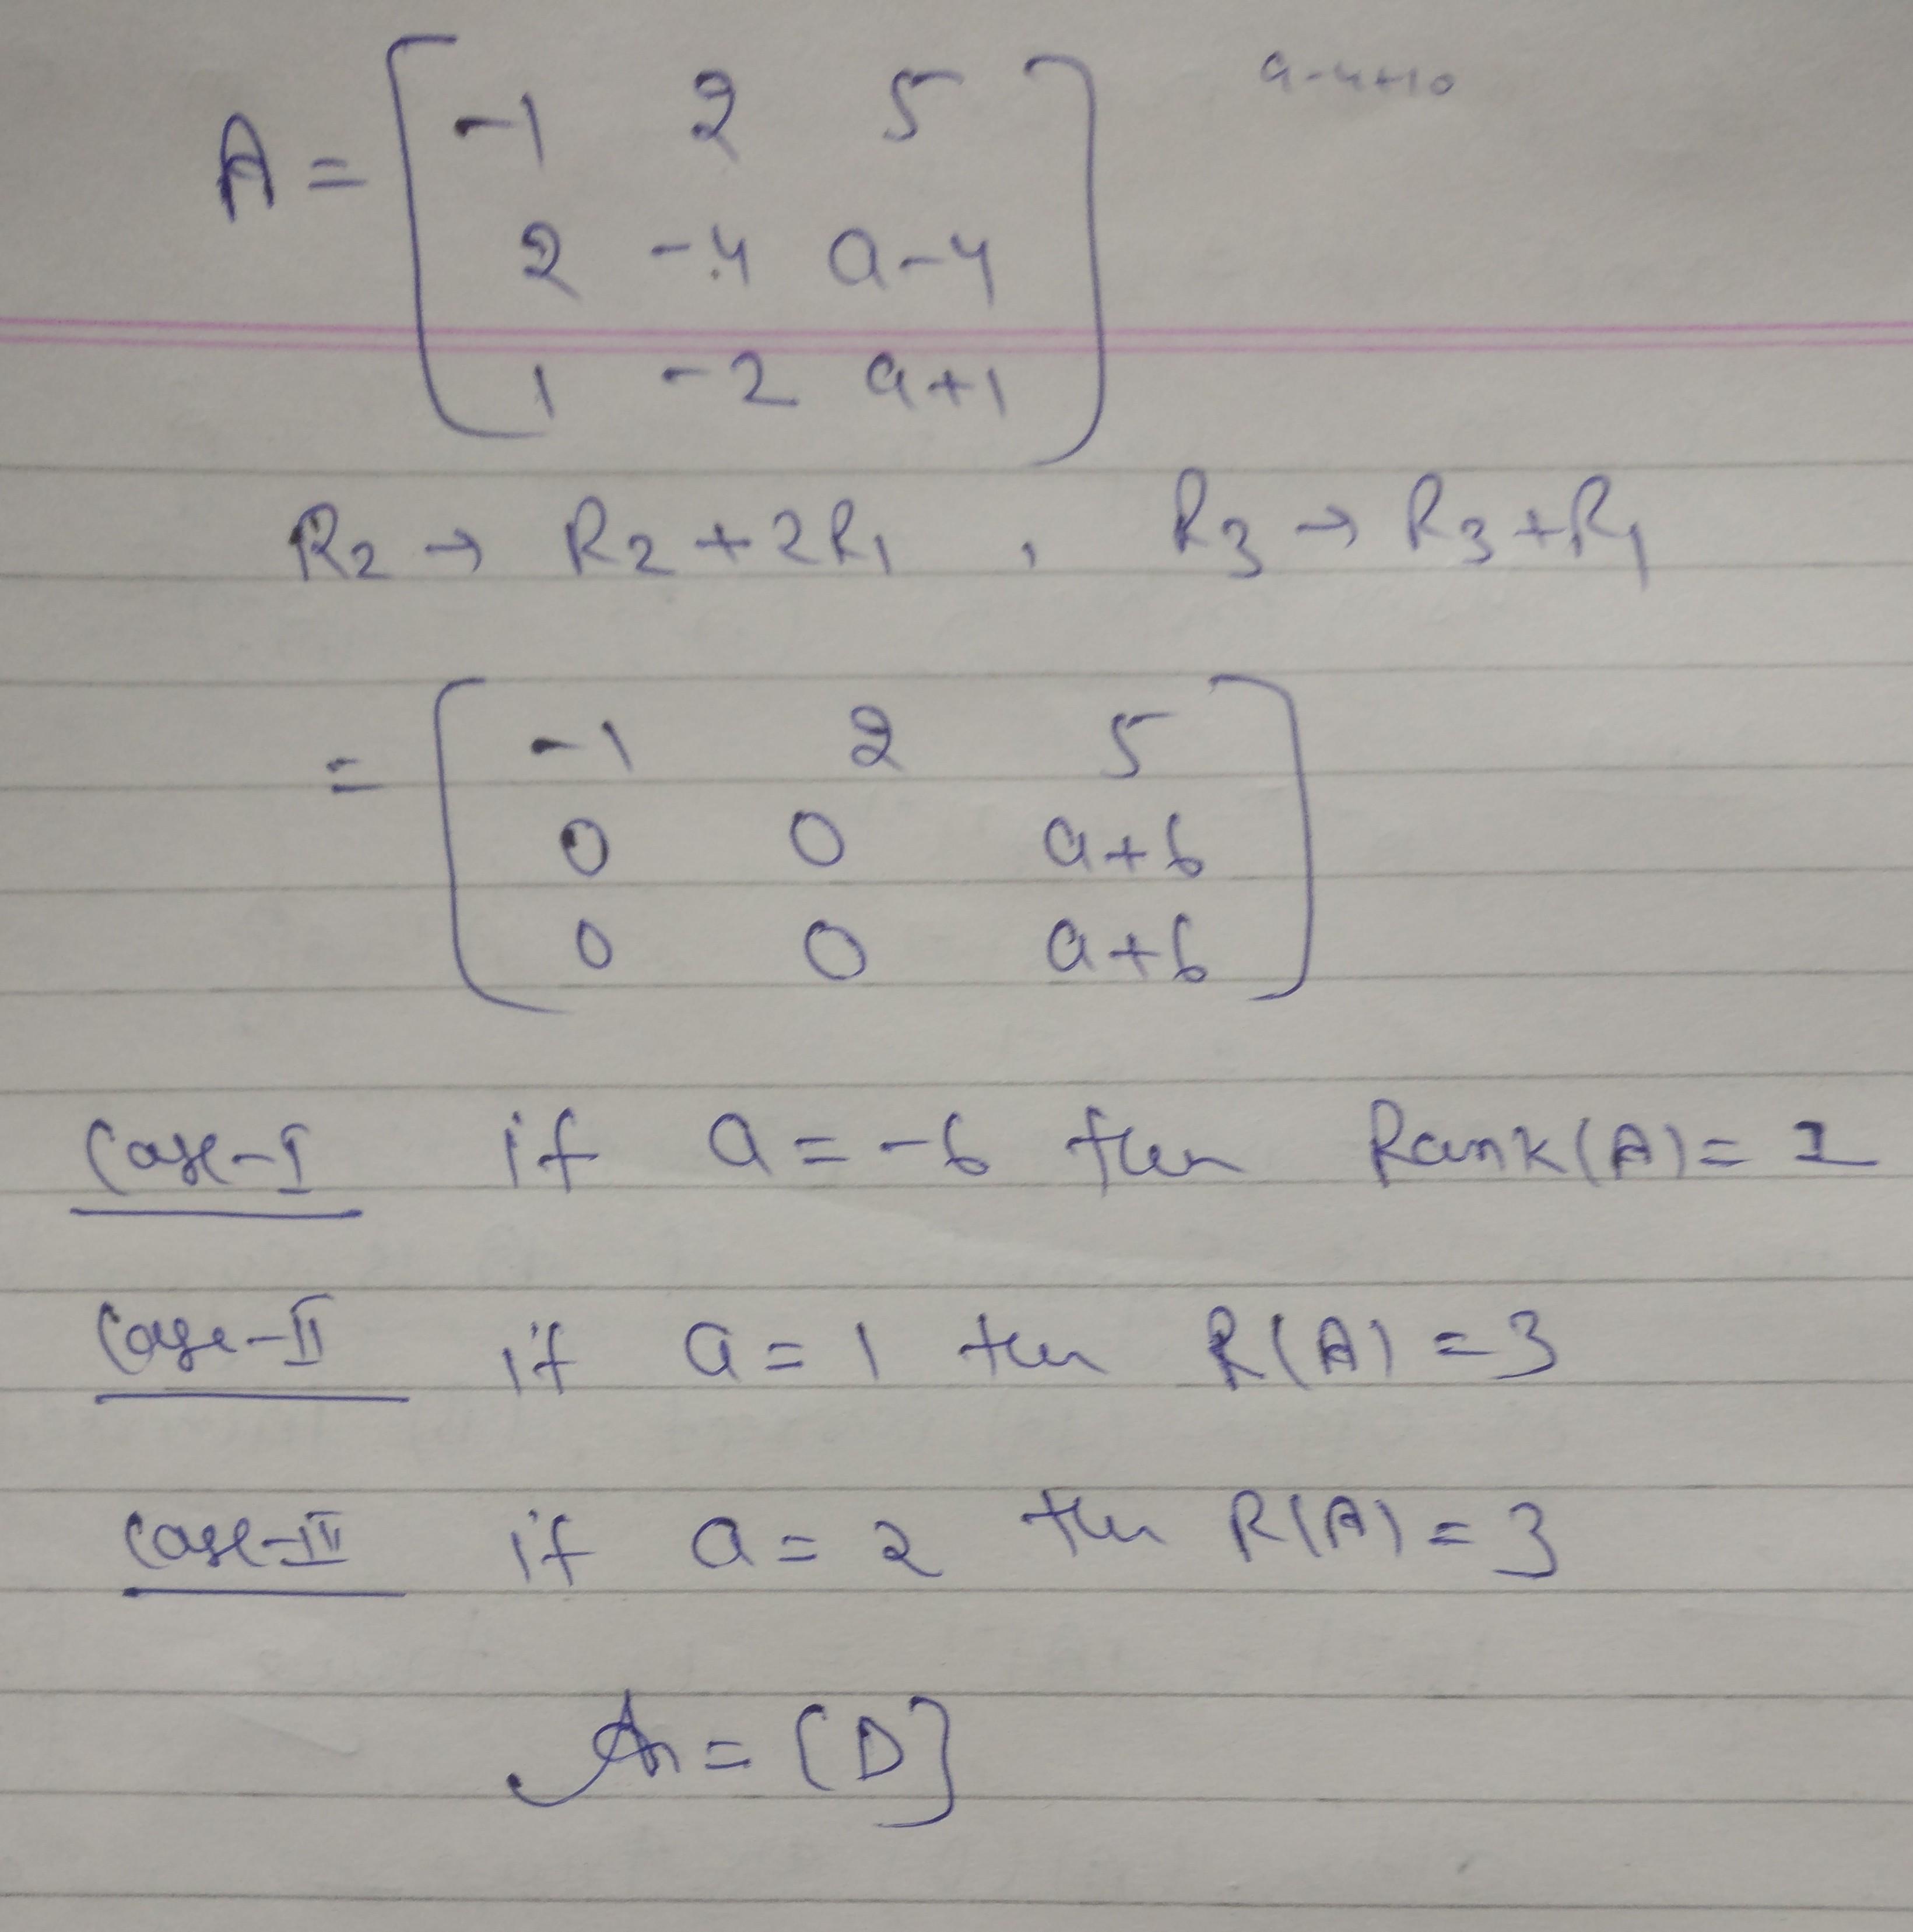 a-4+10
A = [ -1 2 5
2 -4 a-4
1 -2 a+1 ]
R2 → R2 + 2R1 , R3 → R3 + R1
= [ -1 2 5
0 0 a+6
0 0 a+6 ]
Case-I if a = -6 then Rank(A) = 1
Case-II if a = 1 then R(A) = 3
Case-III if a = 2 then R(A) = 3
An = [D]